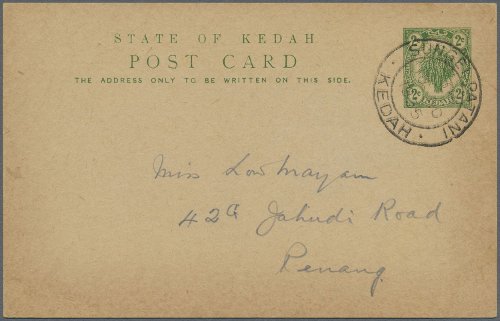 STATE OF KEDAH
POST CARD
THE ADDRESS ONLY TO BE WRITTEN ON THIS SIDE.
2c 2c
KEDAH
SUNGEI PATANI
KEDAH
Miss Low Mayam
42A Jahudi Road
Penang.